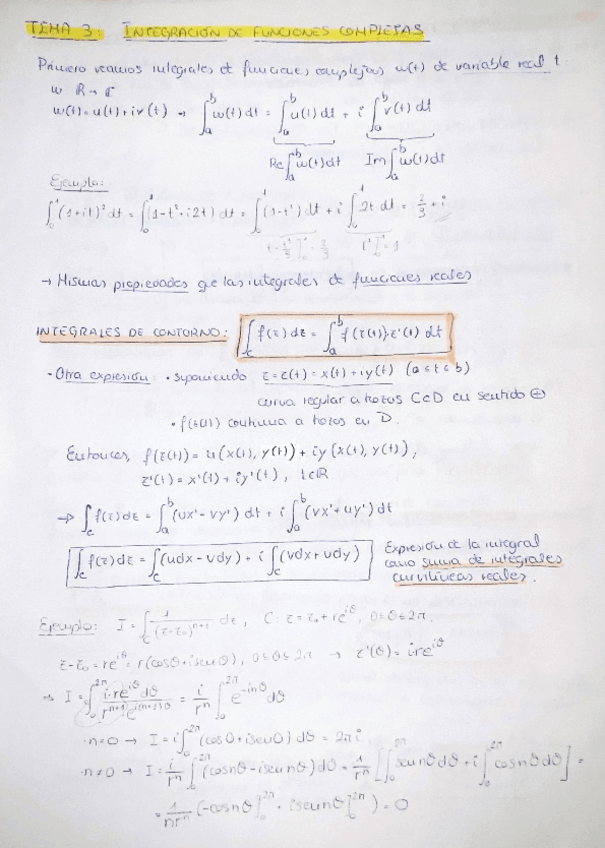 TEMA 3: INTEGRACIÓN DE FUNCIONES COMPLEJAS
Primero veamos integrales de funciones complejas w(t) de variable real t:
w: ℝ → ℂ
w(t) = u(t) + iv(t) → ∫_a^b w(t) dt = ∫_a^b u(t) dt + i ∫_a^b v(t) dt
Re ∫_a^b w(t) dt Im ∫_a^b w(t) dt
Ejemplo:
∫_0^1 (1+it)² dt = ∫_0^1 (1-t²+i2t) dt = ∫_0^1 (1-t²) dt + i ∫_0^1 2t dt = 2/3 + i
t - t³/3 ]_0^1 = 2/3 t² ]_0^1 = 1
→ Mismas propiedades que las integrales de funciones reales
INTEGRALES DE CONTORNO: ∫_C f(z) dz = ∫_a^b f(z(t)) z'(t) dt
· Otra expresión: • suponiendo z = z(t) = x(t) + iy(t) (a ≤ t ≤ b)
curva regular a trozos C⊂D en sentido ⊕
• f(z(t)) continua a trozos en D.
Entonces, f(z(t)) = u(x(t), y(t)) + iv(x(t), y(t)),
z'(t) = x'(t) + iy'(t), t∈ℝ
→ ∫_C f(z) dz = ∫_a^b (ux' - vy') dt + i ∫_a^b (vx' + uy') dt
∫_C f(z) dz = ∫_C (udx - vdy) + i ∫_C (vdx + udy) Expresión de la integral
como suma de integrales
curvilíneas reales.
Ejemplo: I = ∫_C 1/(z-z₀)^{n+1} dz, C: z = z₀ + re^{iθ}, 0 ≤ θ ≤ 2π
z - z₀ = re^{iθ} = r(cosθ + isenθ), 0 ≤ θ ≤ 2π → z'(θ) = ire^{iθ}
→ I = ∫_0^{2π} ire^{iθ} dθ / r^{n+1} e^{i(n+1)θ} = i/rⁿ ∫_0^{2π} e^{-inθ} dθ
·n=0 → I = i ∫_0^{2π} (cos0 + isen0) dθ = 2πi
·n≠0 → I = i/rⁿ ∫_0^{2π} (cosnθ - isennθ) dθ = 1/rⁿ [ ∫_0^{2π} sennθ dθ + i ∫_0^{2π} cosnθ dθ ] =
= 1/nrⁿ (-cosnθ ]_0^{2π} + isennθ ]_0^{2π} ) = 0